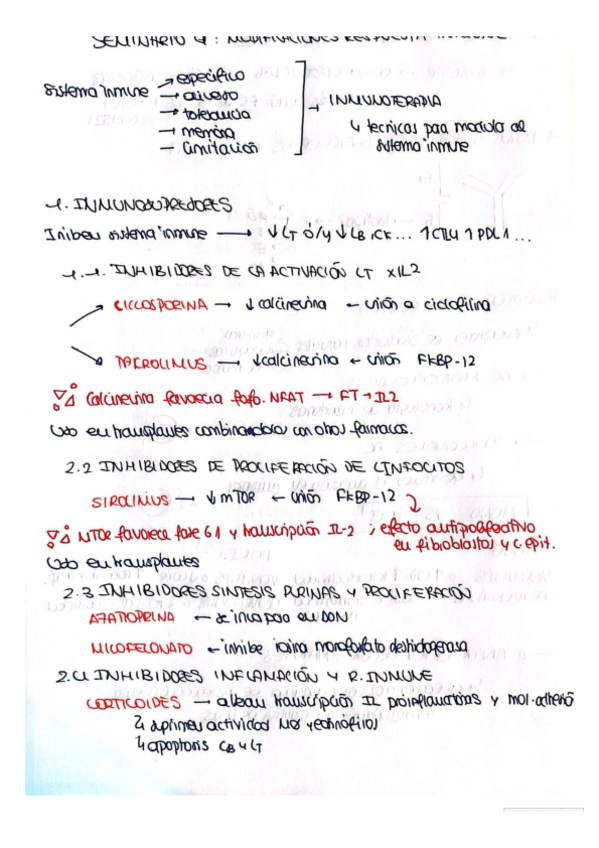 SEMINARIO 4: MODIFICACIONES RESPUESTA INMUNE
Sistema inmune → específico
→ diverso
→ tolerancia
→ memoria
→ limitación
→ INMUNOTERAPIA
↳ técnicas para modular al
sistema inmune
1. INMUNOSUPRESORES
Inhiben sistema inmune → ↓ LT ó/y ↓ LB, CK... ↑CTL4 ↑PDL1...
1.1. INHIBIDORES DE LA ACTIVACIÓN LT x IL2
CICLOSPORINA → ↓ calcineurina ← unión a ciclofilina
TACROLIMUS → ↓ calcineurina ← unión FKBP-12
Calcineurina favorecía fosfo. NFAT → FT → IL2
Uso en transplantes combinandolos con otros fármacos.
2.2 INHIBIDORES DE PROLIFERACIÓN DE LINFOCITOS
SIROLIMUS → ↓ mTOR ← unión FKBP-12
MTOR favorece fase G1 y transcripción IL-2 ; efecto antiproliferativo
en fibroblastos y c. epit.
Uso en transplantes
2.3 INHIBIDORES SINTESIS PURINAS Y PROLIFERACIÓN
AZATIOPRINA ← se incorpora en DON
MICOFELONATO ← inhibe iosina monofosfato deshidogenasa
2.4 INHIBIDORES INFLAMACIÓN Y R. INMUNE
CORTICOIDES → alteran transcripción IL proinflamatorias y mol. adhesió
↳ suprimen actividad MØ y eosinofilos
↳ apoptosis LB y LT